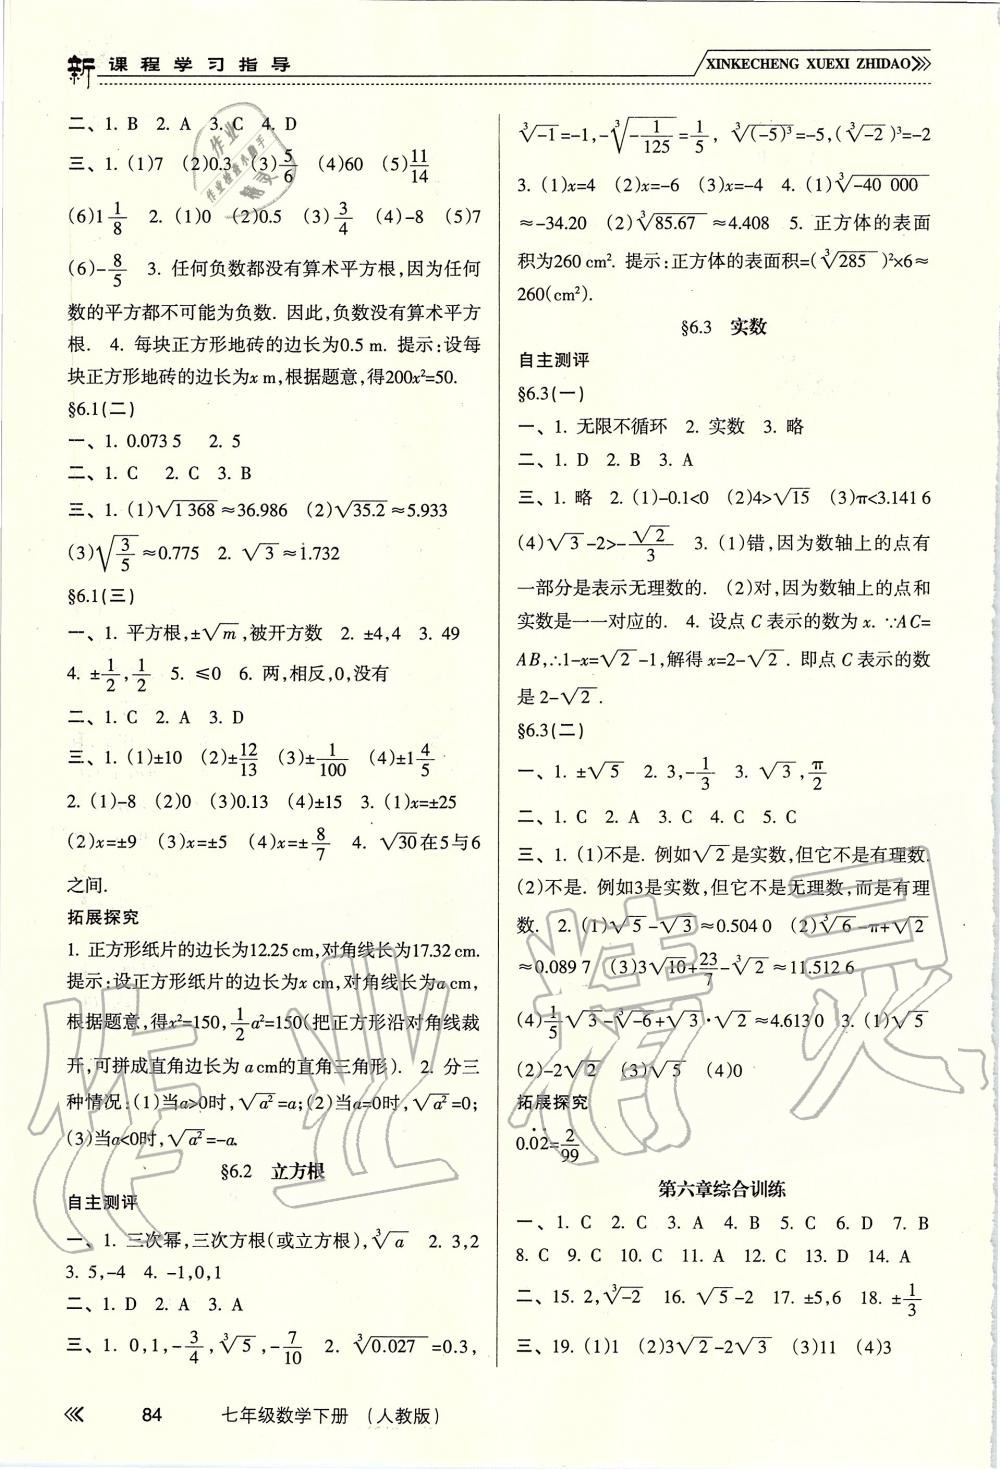 新课程学习指导
XINKECHENG XUEXI ZHIDAO
二、1. B 2. A 3. C 4. D
三、1. (1)7 (2)0.3 (3)5/6 (4)60 (5)11/14
(6)1 1/8 2. (1)0 (2)0.5 (3)3/4 (4)-8 (5)7
(6)-8/5 3. 任何负数都没有算术平方根,因为任何
数的平方都不可能为负数. 因此,负数没有算术平方
根. 4. 每块正方形地砖的边长为0.5 m. 提示:设每
块正方形地砖的边长为x m,根据题意,得200x²=50.
§6.1(二)
一、1. 0.073 5 2. 5
二、1. C 2. C 3. B
三、1. (1)√1 368≈36.986 (2)√35.2≈5.933
(3)√(3/5)≈0.775 2. √3≈1.732
§6.1(三)
一、1. 平方根,±√m,被开方数 2. ±4,4 3. 49
4. ±1/2,1/2 5. ≤0 6. 两,相反,0,没有
二、1. C 2. A 3. D
三、1. (1)±10 (2)±12/13 (3)±1/100 (4)±1 4/5
2. (1)-8 (2)0 (3)0.13 (4)±15 3. (1)x=±25
(2)x=±9 (3)x=±5 (4)x=±8/7 4. √30在5与6
之间.
拓展探究
1. 正方形纸片的边长为12.25 cm,对角线长为17.32 cm.
提示:设正方形纸片的边长为x cm,对角线长为a cm,
根据题意,得x²=150,1/2a²=150(把正方形沿对角线裁
开,可拼成直角边长为 a cm的直角三角形). 2. 分三
种情况:(1)当a>0时,√a²=a;(2)当a=0时,√a²=0;
(3)当a<0时,√a²=-a.
§6.2 立方根
自主测评
一、1. 三次幂,三次方根(或立方根),∛a 2. 3,2
3. 5,-4 4. -1,0,1
二、1. D 2. A 3. A
三、1. 0,1,-3/4,∛5,-7/10 2. ∛0.027=0.3,
∛-1=-1,-∛(-1/125)=1/5, ∛(-5)³=-5,(∛-2)³=-2
3. (1)x=4 (2)x=-6 (3)x=-4 4. (1)∛-40 000
≈-34.20 (2)∛85.67≈4.408 5. 正方体的表面
积为260 cm². 提示:正方体的表面积=(∛285)²×6≈
260(cm²).
§6.3 实数
自主测评
§6.3(一)
一、1. 无限不循环 2. 实数 3. 略
二、1. D 2. B 3. A
三、1. 略 2. (1)-0.1<0 (2)4>√15 (3)π<3.141 6
(4)√3-2>-√2/3 3. (1)错,因为数轴上的点有
一部分是表示无理数的. (2)对,因为数轴上的点和
实数是一一对应的. 4. 设点 C 表示的数为 x. ∵AC=
AB,∴1-x=√2-1,解得 x=2-√2. 即点 C 表示的数
是 2-√2.
§6.3(二)
一、1. ±√5 2. 3,-1/3 3. √3,π/2
二、1. C 2. A 3. C 4. C 5. C
三、1. (1)不是. 例如√2是实数,但它不是有理数.
(2)不是. 例如3是实数,但它不是无理数,而是有理
数. 2. (1)√5-√3≈0.504 0 (2)∛6-π+√2
≈0.089 7 (3)3√10+23/7-∛2≈11.512 6
(4)1/5√3-∛-6+√3·√2≈4.613 0 3. (1)√5
(2)-2√2 (3)√5 (4)0
拓展探究
0.0̇2̇=2/99
第六章综合训练
一、1. C 2. C 3. A 4. B 5. C 6. D 7. B
8. C 9. C 10. C 11. A 12. C 13. D 14. A
二、15. 2,∛-2 16. √5-2 17. ±5,6 18. ±1/3
三、19. (1)1 (2)3√2-2√3 (3)11 (4)3
84 七年级数学下册 (人教版)
作业精灵